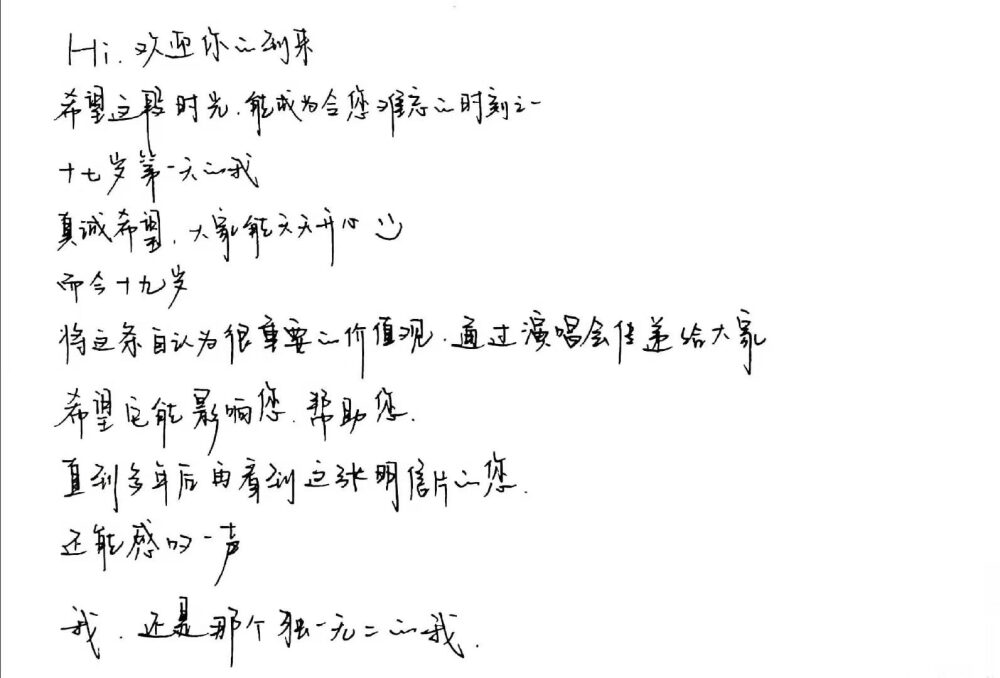 Hi. 欢迎你的到来
希望这段时光,能成为令您难忘的时刻之一
十七岁第一天的我
真诚希望,大家能天天开心
而今十九岁
将这条自认为很重要的价值观,通过演唱会传递给大家
希望它能影响您,帮助您.
直到多年后再看到这张明信片的您.
还能感叹一声
我,还是那个独一无二的我.